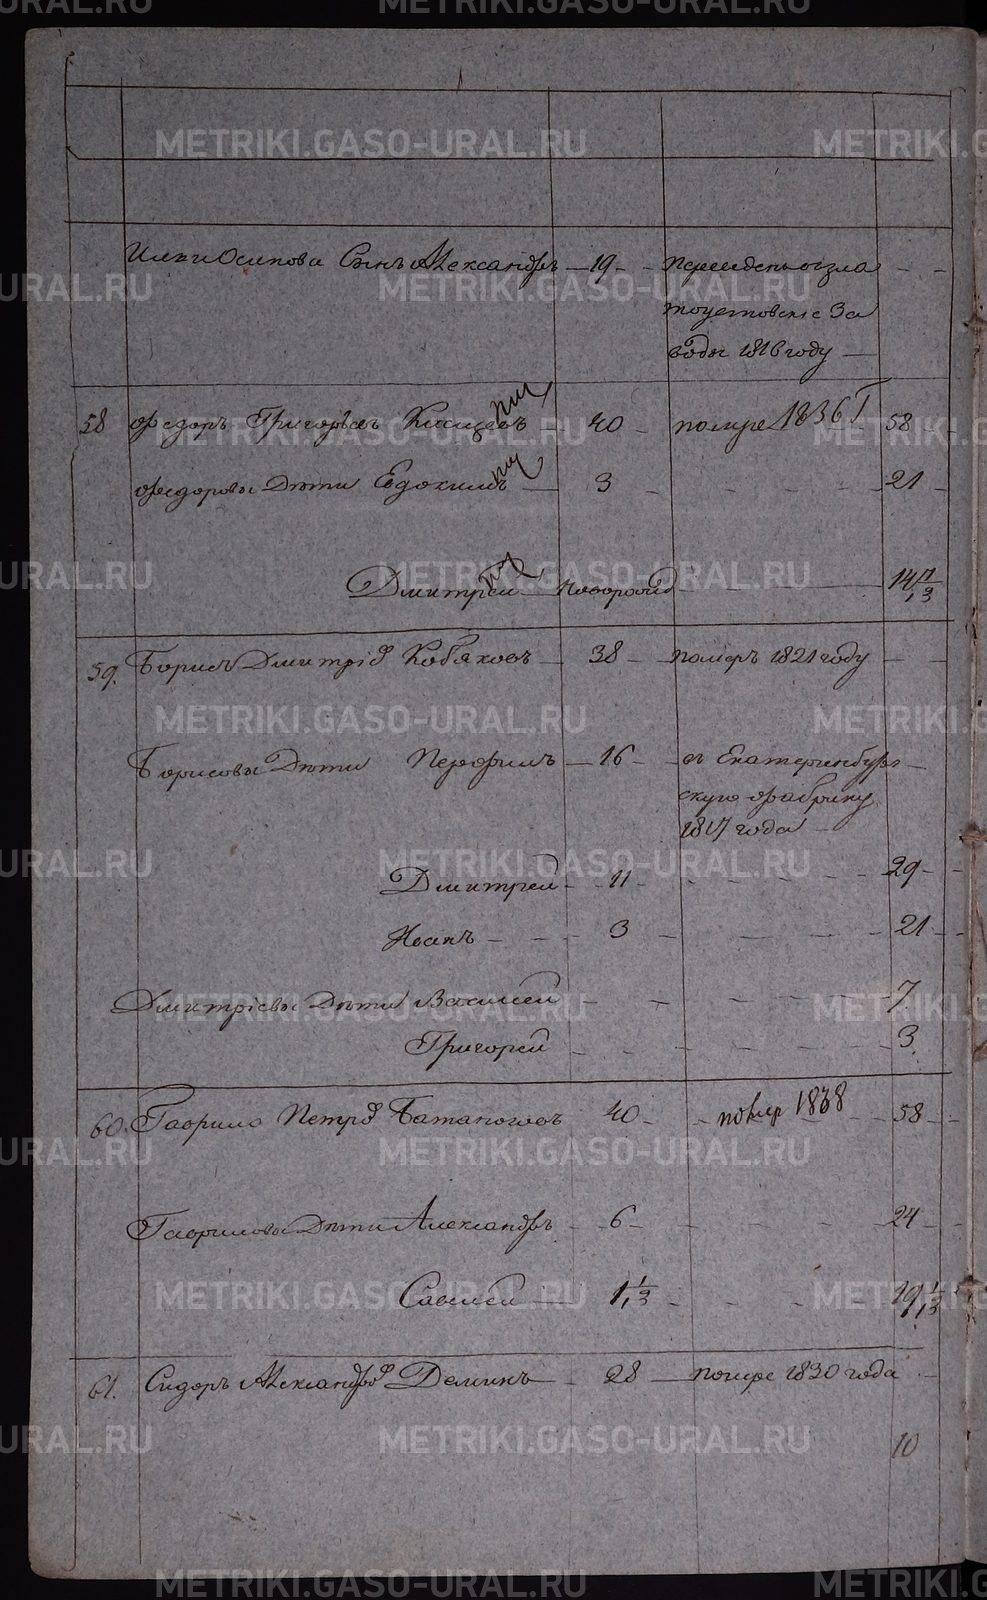 Ильи Осипова Сынъ Александръ — 19 — переведенъ в зла
тоустовские За
воды 1816 году —
58 Федоръ Григорьевъ Кощеевъ — 40 — помре 1836 Г 58
Федоровы Дети Евдокимъ — 3 — 21
Дмитрей новорожд 14 1/13
59. Борисъ Дмитріев Кобяковъ — 38 — померъ 1821 году
Борисовы Дети Перфилъ — 16 — въ Екатеринбург
скую фабрику
1817 года —
Дмитрей — 11 — 29
Иоанъ — 3 — 21
Дмитріевы Дети Василей — 7
Григорей — 3
60. Гаврило Петров 40 — помер 1838 58
Гавриловы Дети Александръ — 6 — 24
Савелей — 1 1/13 — 19 1/13
61. Сидоръ Александров Деминъ — 28 — помре 1830 года
10
METRIKI.GASO-URAL.RU